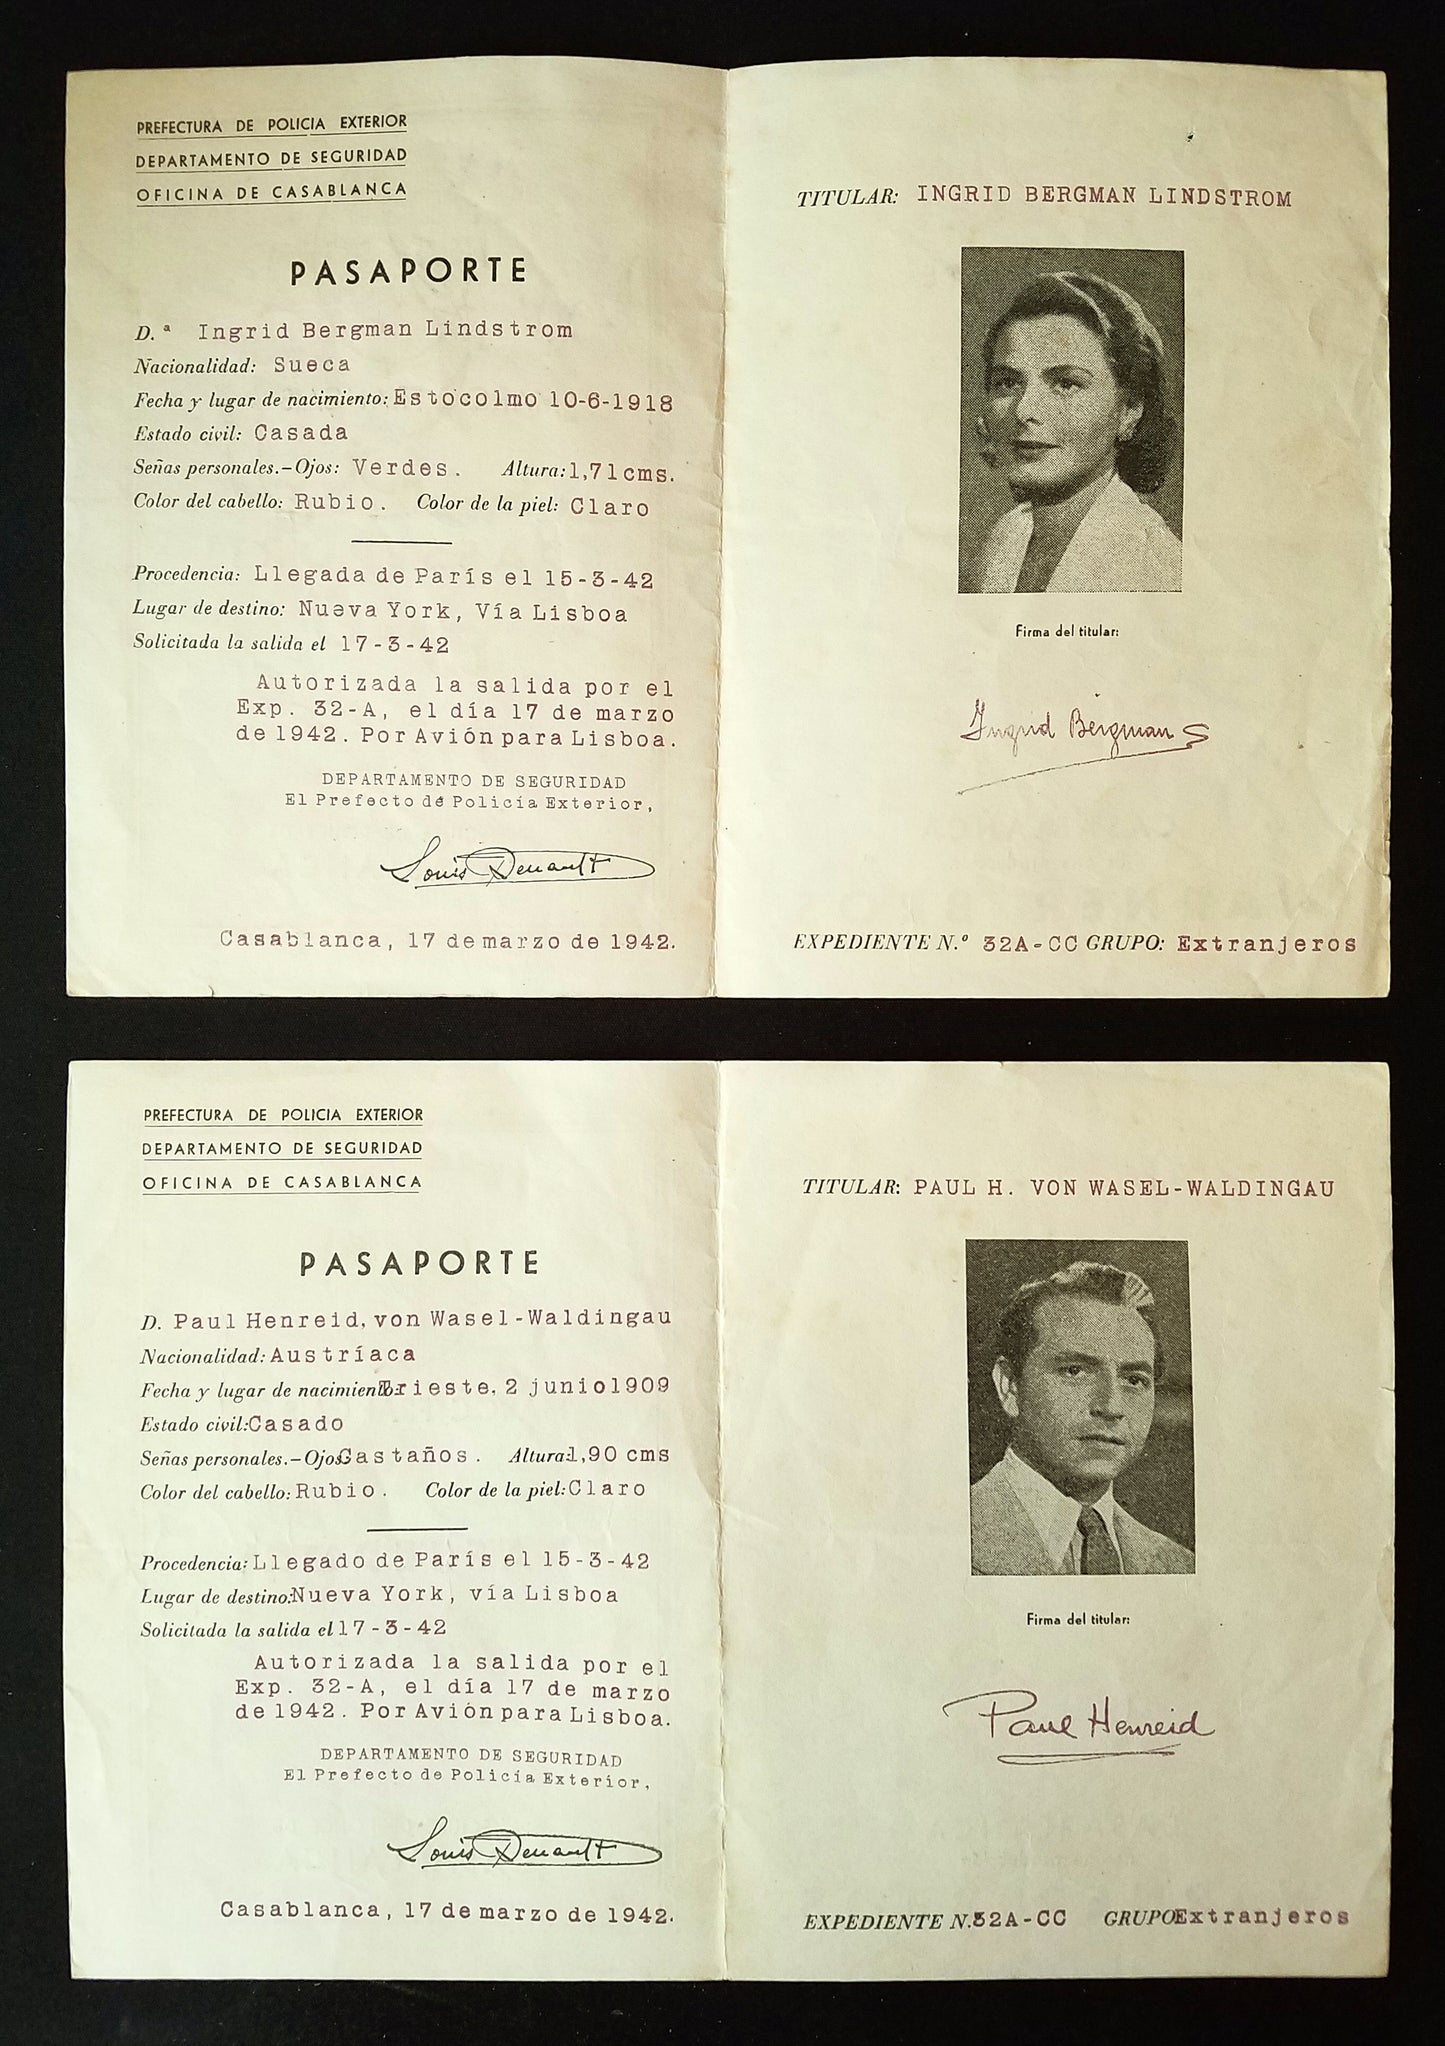 PREFECTURA DE POLICIA EXTERIOR
DEPARTAMENTO DE SEGURIDAD
OFICINA DE CASABLANCA
PASAPORTE
D.ª Ingrid Bergman Lindstrom
Nacionalidad: Sueca
Fecha y lugar de nacimiento: Estocolmo 10-6-1918
Estado civil: Casada
Señas personales.-Ojos: Verdes. Altura: 1,71 cms.
Color del cabello: Rubio. Color de la piel: Claro
Procedencia: Llegada de París el 15-3-42
Lugar de destino: Nueva York, Vía Lisboa
Solicitada la salida el 17-3-42
Autorizada la salida por el
Exp. 32-A, el día 17 de marzo
de 1942. Por Avión para Lisboa.
DEPARTAMENTO DE SEGURIDAD
El Prefecto de Policía Exterior,
Louis Renault
Casablanca, 17 de marzo de 1942.
TITULAR: INGRID BERGMAN LINDSTROM
Firma del titular:
Ingrid Bergman
EXPEDIENTE N.º 32A-CC GRUPO: Extranjeros
PREFECTURA DE POLICIA EXTERIOR
DEPARTAMENTO DE SEGURIDAD
OFICINA DE CASABLANCA
PASAPORTE
D. Paul Henreid, von Wasel-Waldingau
Nacionalidad: Austríaca
Fecha y lugar de nacimiento: Trieste, 2 junio 1909
Estado civil: Casado
Señas personales.-Ojos: Castaños. Altura: 1,90 cms
Color del cabello: Rubio. Color de la piel: Claro
Procedencia: Llegado de París el 15-3-42
Lugar de destino: Nueva York, vía Lisboa
Solicitada la salida el 17-3-42
Autorizada la salida por el
Exp. 32-A, el día 17 de marzo
de 1942. Por Avión para Lisboa.
DEPARTAMENTO DE SEGURIDAD
El Prefecto de Policía Exterior,
Louis Renault
Casablanca, 17 de marzo de 1942.
TITULAR: PAUL H. VON WASEL-WALDINGAU
Firma del titular:
Paul Henreid
EXPEDIENTE N.º 32A-CC GRUPO: Extranjeros